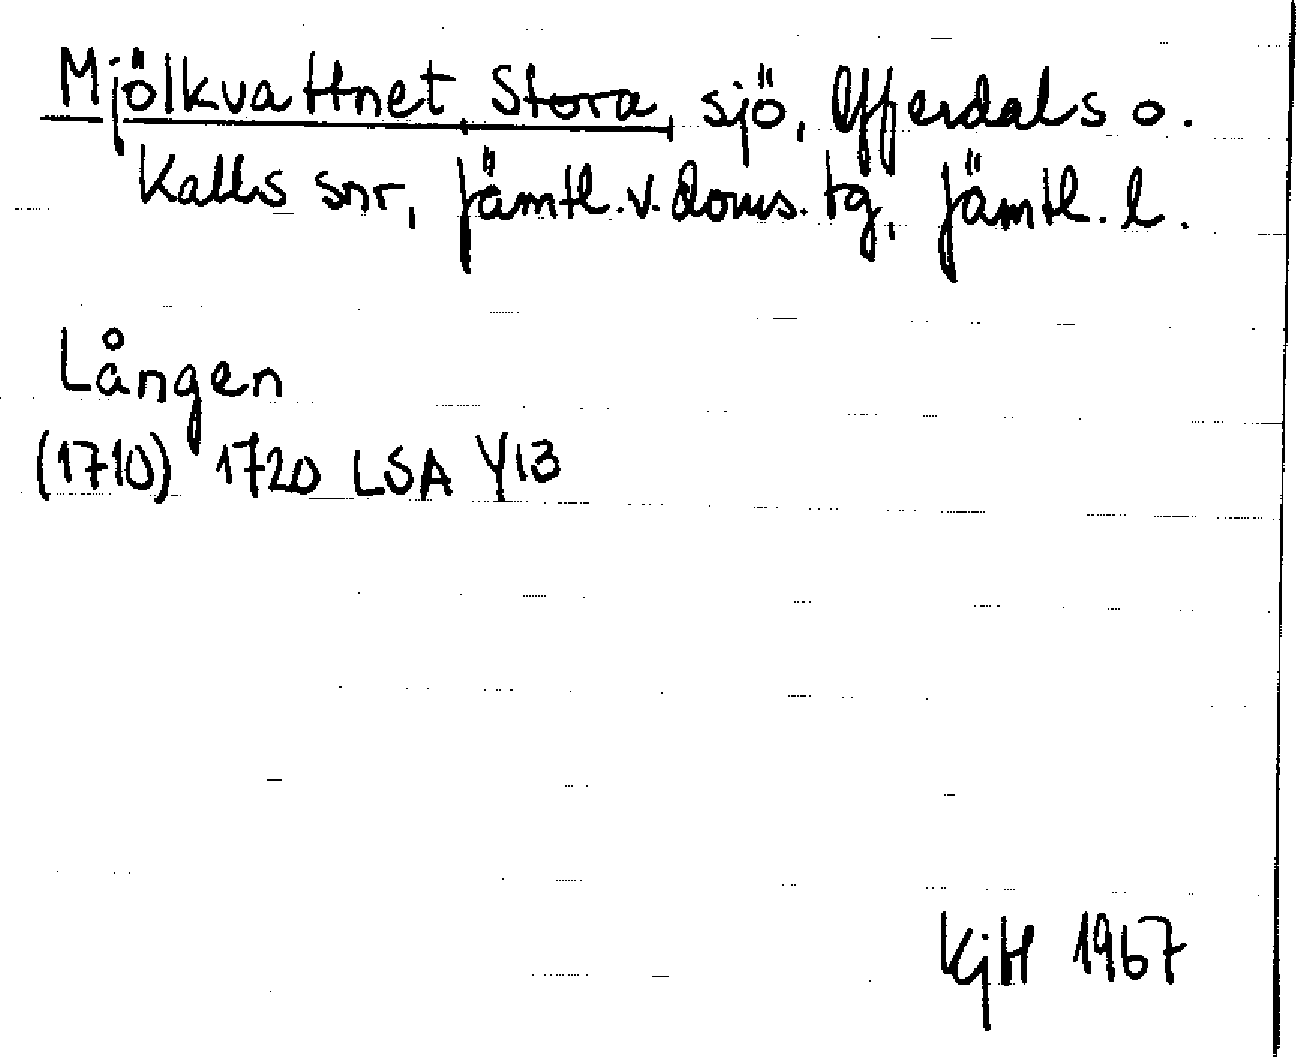 Mjölkvattnet, Stora, sjö, Offerdals o.
Kalls snr, Jämtl. v. doms. tg, Jämtl. l.
Lången
(1710) 1720 LSA Y13
KjH 1967